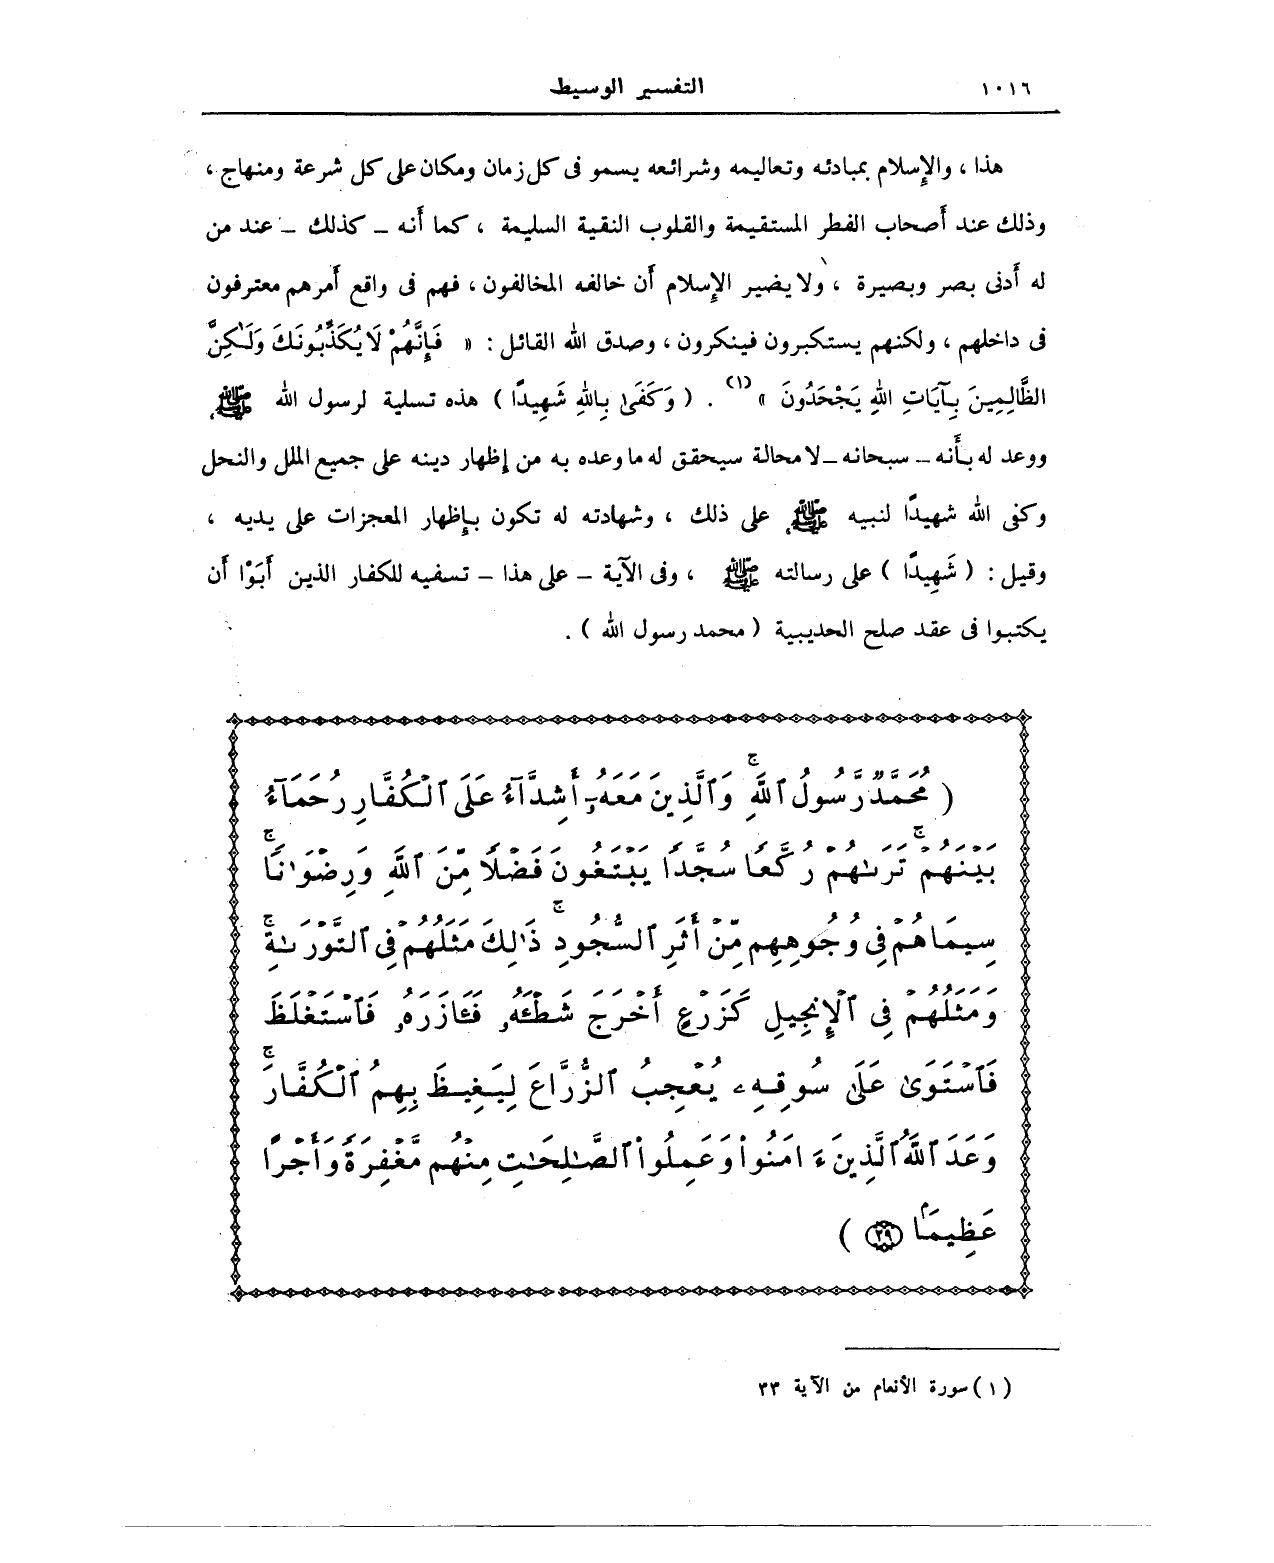 ١٠١٦ التفسير الوسيط
هذا ، والإسلام بمبادئه وتعاليمه وشرائعه يسمو فى كل زمان ومكان على كل شرعة ومنهاج ،
وذلك عند أصحاب الفطر المستقيمة والقلوب النقية السليمة ، كما أنه – كذلك – عند من
له أدنى بصر وبصيرة ، ولا يضير الإسلام أن خالفه المخالفون ، فهم فى واقع أمرهم معترفون
فى داخلهم ، ولكنهم يستكبرون فينكرون ، وصدق الله القائل : « فَإِنَّهُمْ لَا يُكَذِّبُونَكَ وَلَٰكِنَّ
الظَّالِمِينَ بِآيَاتِ اللهِ يَجْحَدُونَ » (١) . ( وَكَفَىٰ بِاللهِ شَهِيدًا ) هذه تسلية لرسول الله ﷺ
ووعد له بأنه – سبحانه – لا محالة سيحقق له ما وعده به من إظهار دينه على جميع الملل والنحل
وكفى الله شهيدًا لنبيه ﷺ على ذلك ، وشهادته له تكون بإظهار المعجزات على يديه ،
وقيل : ( شَهِيدًا ) على رسالته ﷺ ، وفى الآية – على هذا – تسفيه للكفار الذين أَبَوْا أن
يكتبوا فى عقد صلح الحديبية ( محمد رسول الله ) .
( مُّحَمَّدٌ رَّسُولُ ٱللَّهِۚ وَٱلَّذِينَ مَعَهُۥٓ أَشِدَّآءُ عَلَى ٱلْكُفَّارِ رُحَمَآءُ
بَيْنَهُمْۚ تَرَىٰهُمْ رُكَّعًا سُجَّدًا يَبْتَغُونَ فَضْلًا مِّنَ ٱللَّهِ وَرِضْوَٰنًاۚ
سِيمَاهُمْ فِى وُجُوهِهِم مِّنْ أَثَرِ ٱلسُّجُودِۚ ذَٰلِكَ مَثَلُهُمْ فِى ٱلتَّوْرَىٰةِۚ
وَمَثَلُهُمْ فِى ٱلْإِنجِيلِ كَزَرْعٍ أَخْرَجَ شَطْـَٔهُۥ فَـَٔازَرَهُۥ فَٱسْتَغْلَظَ
فَٱسْتَوَىٰ عَلَىٰ سُوقِهِۦ يُعْجِبُ ٱلزُّرَّاعَ لِيَغِيظَ بِهِمُ ٱلْكُفَّارَۚ
وَعَدَ ٱللَّهُ ٱلَّذِينَ ءَامَنُوا۟ وَعَمِلُوا۟ ٱلصَّـٰلِحَـٰتِ مِنْهُم مَّغْفِرَةً وَأَجْرًا
عَظِيمًۢا ٢٩ )
(١) سورة الأنعام من الآية ٣٣